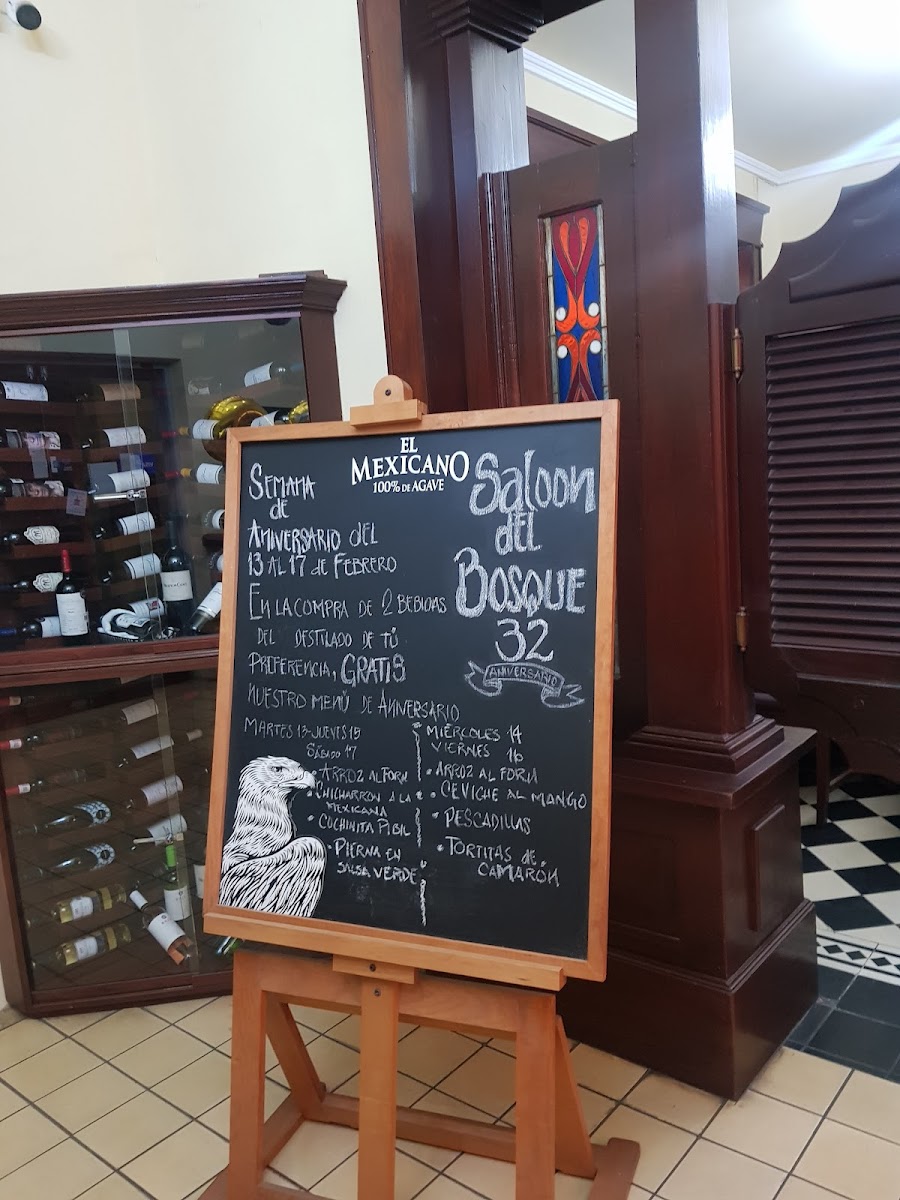 EL
MEXICANO
100% DE AGAVE
SEMANA
DE
ANIVERSARIO DEL
13 AL 17 de FEBRERO
EN LA COMPRA DE 2 BEBIDAS
DEL DESTILADO DE TÚ
PREFERENCIA, GRATIS
NUESTRO MENÚ DE ANIVERSARIO
Saloon
del
BOSQUE
32
ANIVERSARIO
MARTES 13-JUEVES 15
SÁBADO 17
• ARROZ AL FORN
• CHICHARRON A LA
MEXICANA
• COCHINITA PIBIL
• PIERNA EN
SALSA VERDE
MIÉRCOLES 14
VIERNES 16
• ARROZ AL FORN
• CEVICHE AL MANGO
• PESCADILLAS
• TORTITAS de
CAMARÓN